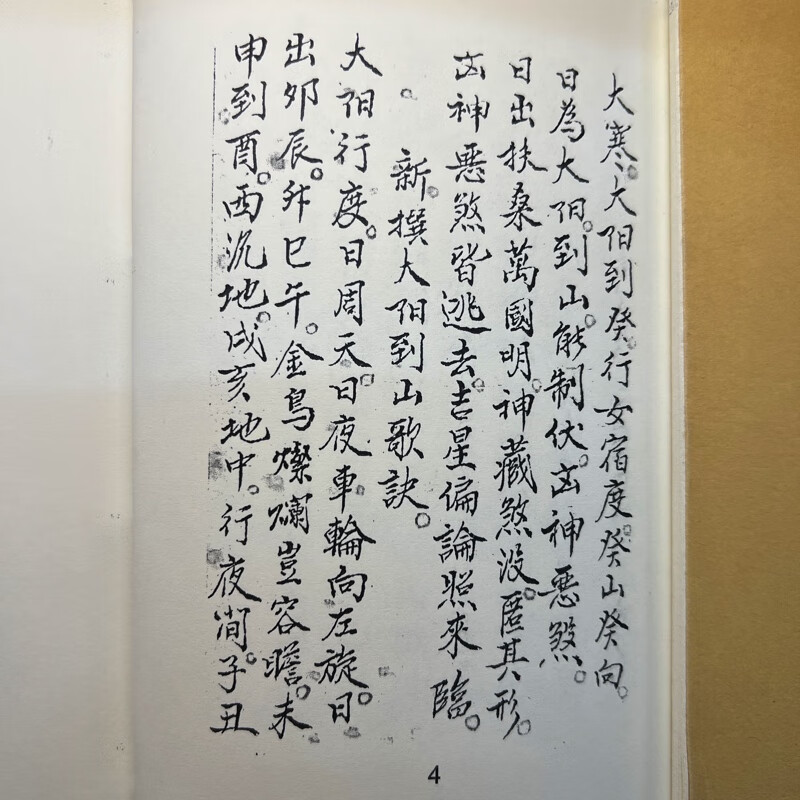 大寒。大阳到癸。行女宿度。癸山癸向。
日為大阳。到山。能制伏。凶神惡煞。
日出扶桑萬國明。神藏煞没。匿其形。
凶神惡煞皆逃去。吉星偏論照來臨。
新撰大阳到山歌訣。
大阳行度。日周天。日夜車輪向左旋。日
出夘辰。升巳午。金烏燦爛豈容瞻。未
申到酉。西沉地。戍亥地中。行夜间。子丑
4